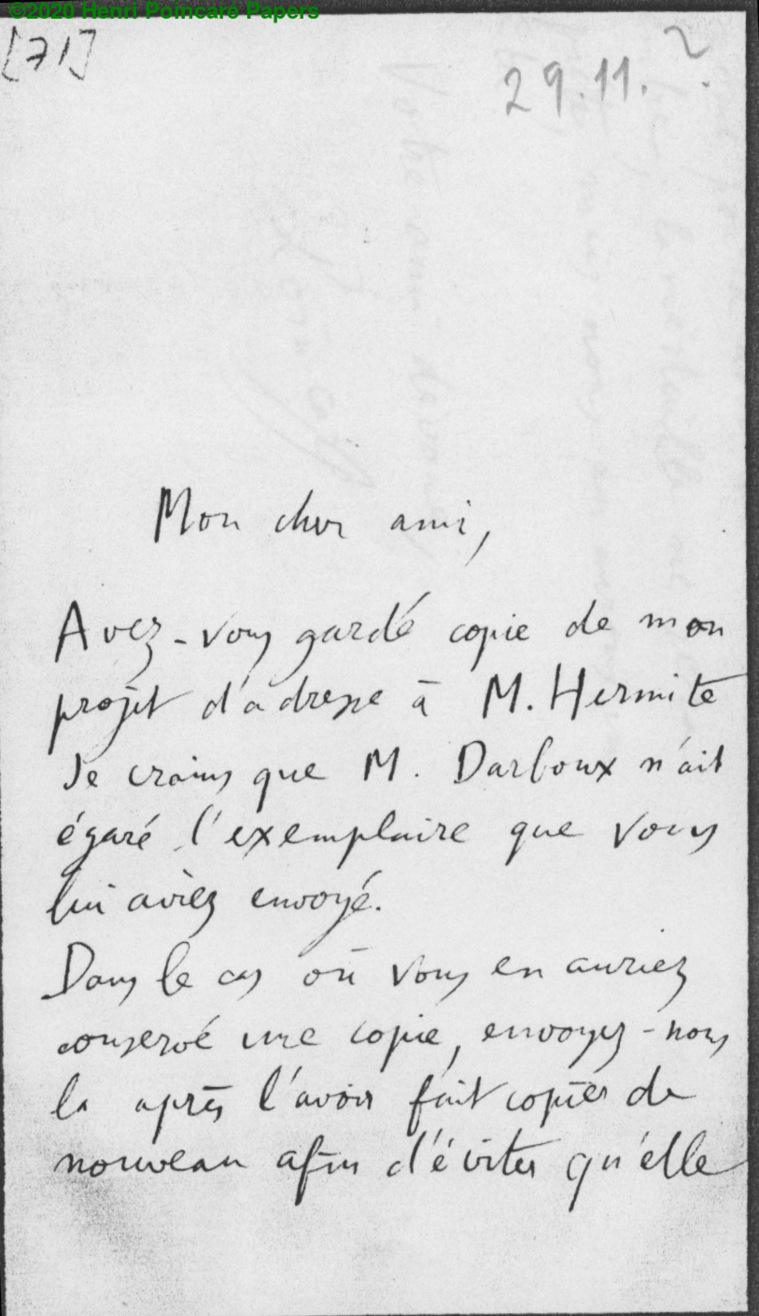 ©2020 Henri Poincaré Papers
[71]
29.11. ?
Mon cher ami,
Avez-vous gardé copie de mon
projet d'adresse à M. Hermite
Je crains que M. Darboux n'ait
égaré l'exemplaire que vous
lui aviez envoyé.
Dans le cas où vous en auriez
conservé une copie, envoyez-nous
la après l'avoir fait copier de
nouveau afin d'éviter qu'elle